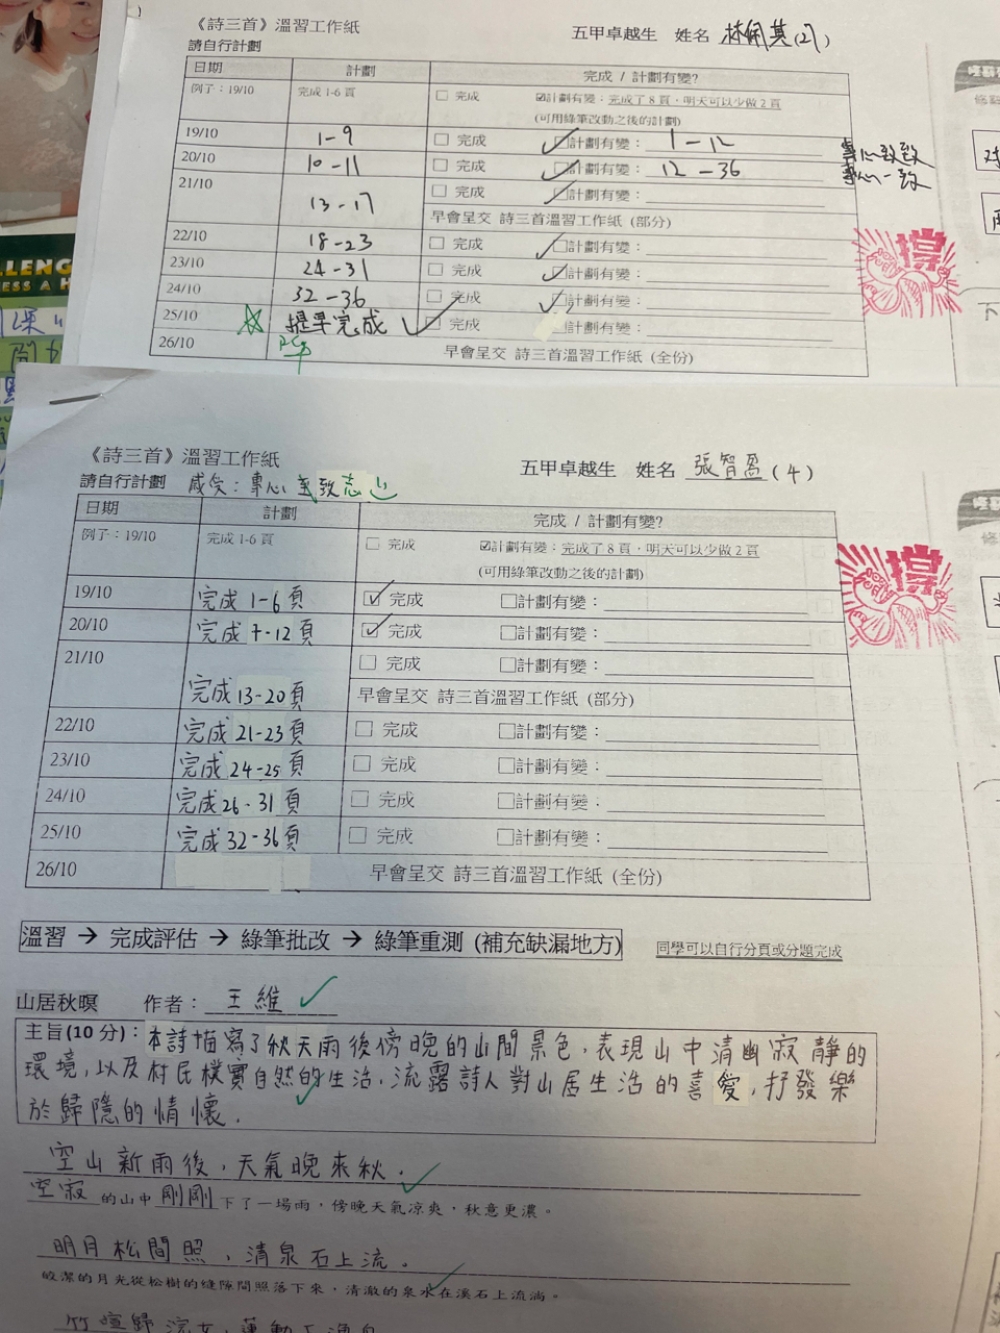 《詩三首》溫習工作紙
五甲卓越生 姓名 林佩其(21)
請自行計劃
日期 計劃 完成 / 計劃有變?
例子：19/10 完成 1-6 頁 □ 完成 ☑計劃有變：完成了 8 頁，明天可以少做 2 頁
(可用綠筆改動之後的計劃)
19/10 1-9 □ 完成 ☑計劃有變： 1-12
20/10 10-11 □ 完成 ☑計劃有變： 12-36
專心致致
專心一致
21/10 13-17 □ 完成 ☑計劃有變：
早會呈交 詩三首溫習工作紙 (部分)
22/10 18-23 □ 完成 ☑計劃有變：
23/10 24-31 □ 完成 ☑計劃有變：
24/10 32-36 □ 完成 ☑計劃有變：
25/10 提早完成 ☑ 完成 □計劃有變：
26/10 早會呈交 詩三首溫習工作紙 (全份)
撐
LLENG
ESS A H
《詩三首》溫習工作紙
五甲卓越生 姓名 張智盈(4)
請自行計劃 感受：專心致志
日期 計劃 完成 / 計劃有變?
例子：19/10 完成 1-6 頁 □ 完成 ☑計劃有變：完成了 8 頁，明天可以少做 2 頁
(可用綠筆改動之後的計劃)
19/10 完成 1-6 頁 ☑ 完成 □計劃有變：
20/10 完成 7-12 頁 ☑ 完成 □計劃有變：
21/10 完成 13-20 頁 □ 完成 □計劃有變：
早會呈交 詩三首溫習工作紙 (部分)
22/10 完成 21-23 頁 □ 完成 □計劃有變：
23/10 完成 24-25 頁 □ 完成 □計劃有變：
24/10 完成 26-31 頁 □ 完成 □計劃有變：
25/10 完成 32-36 頁 □ 完成 □計劃有變：
26/10 早會呈交 詩三首溫習工作紙 (全份)
撐
溫習 → 完成評估 → 綠筆批改 → 綠筆重測 (補充缺漏地方)
同學可以自行分頁或分題完成
山居秋暝 作者： 王維
主旨(10 分)：本詩描寫了秋天雨後傍晚的山間景色，表現山中清幽寂靜的
環境，以及村民樸實自然的生活，流露詩人對山居生活的喜愛，抒發樂
於歸隱的情懷．
空山新雨後，天氣晚來秋．
空寂 的山中 剛剛 下了一場雨，傍晚天氣涼爽，秋意更濃。
明月松間照，清泉石上流。
皎潔的月光從松樹的縫隙間照落下來，清澈的泉水在溪石上流淌。
竹喧歸浣女，蓮動下漁舟